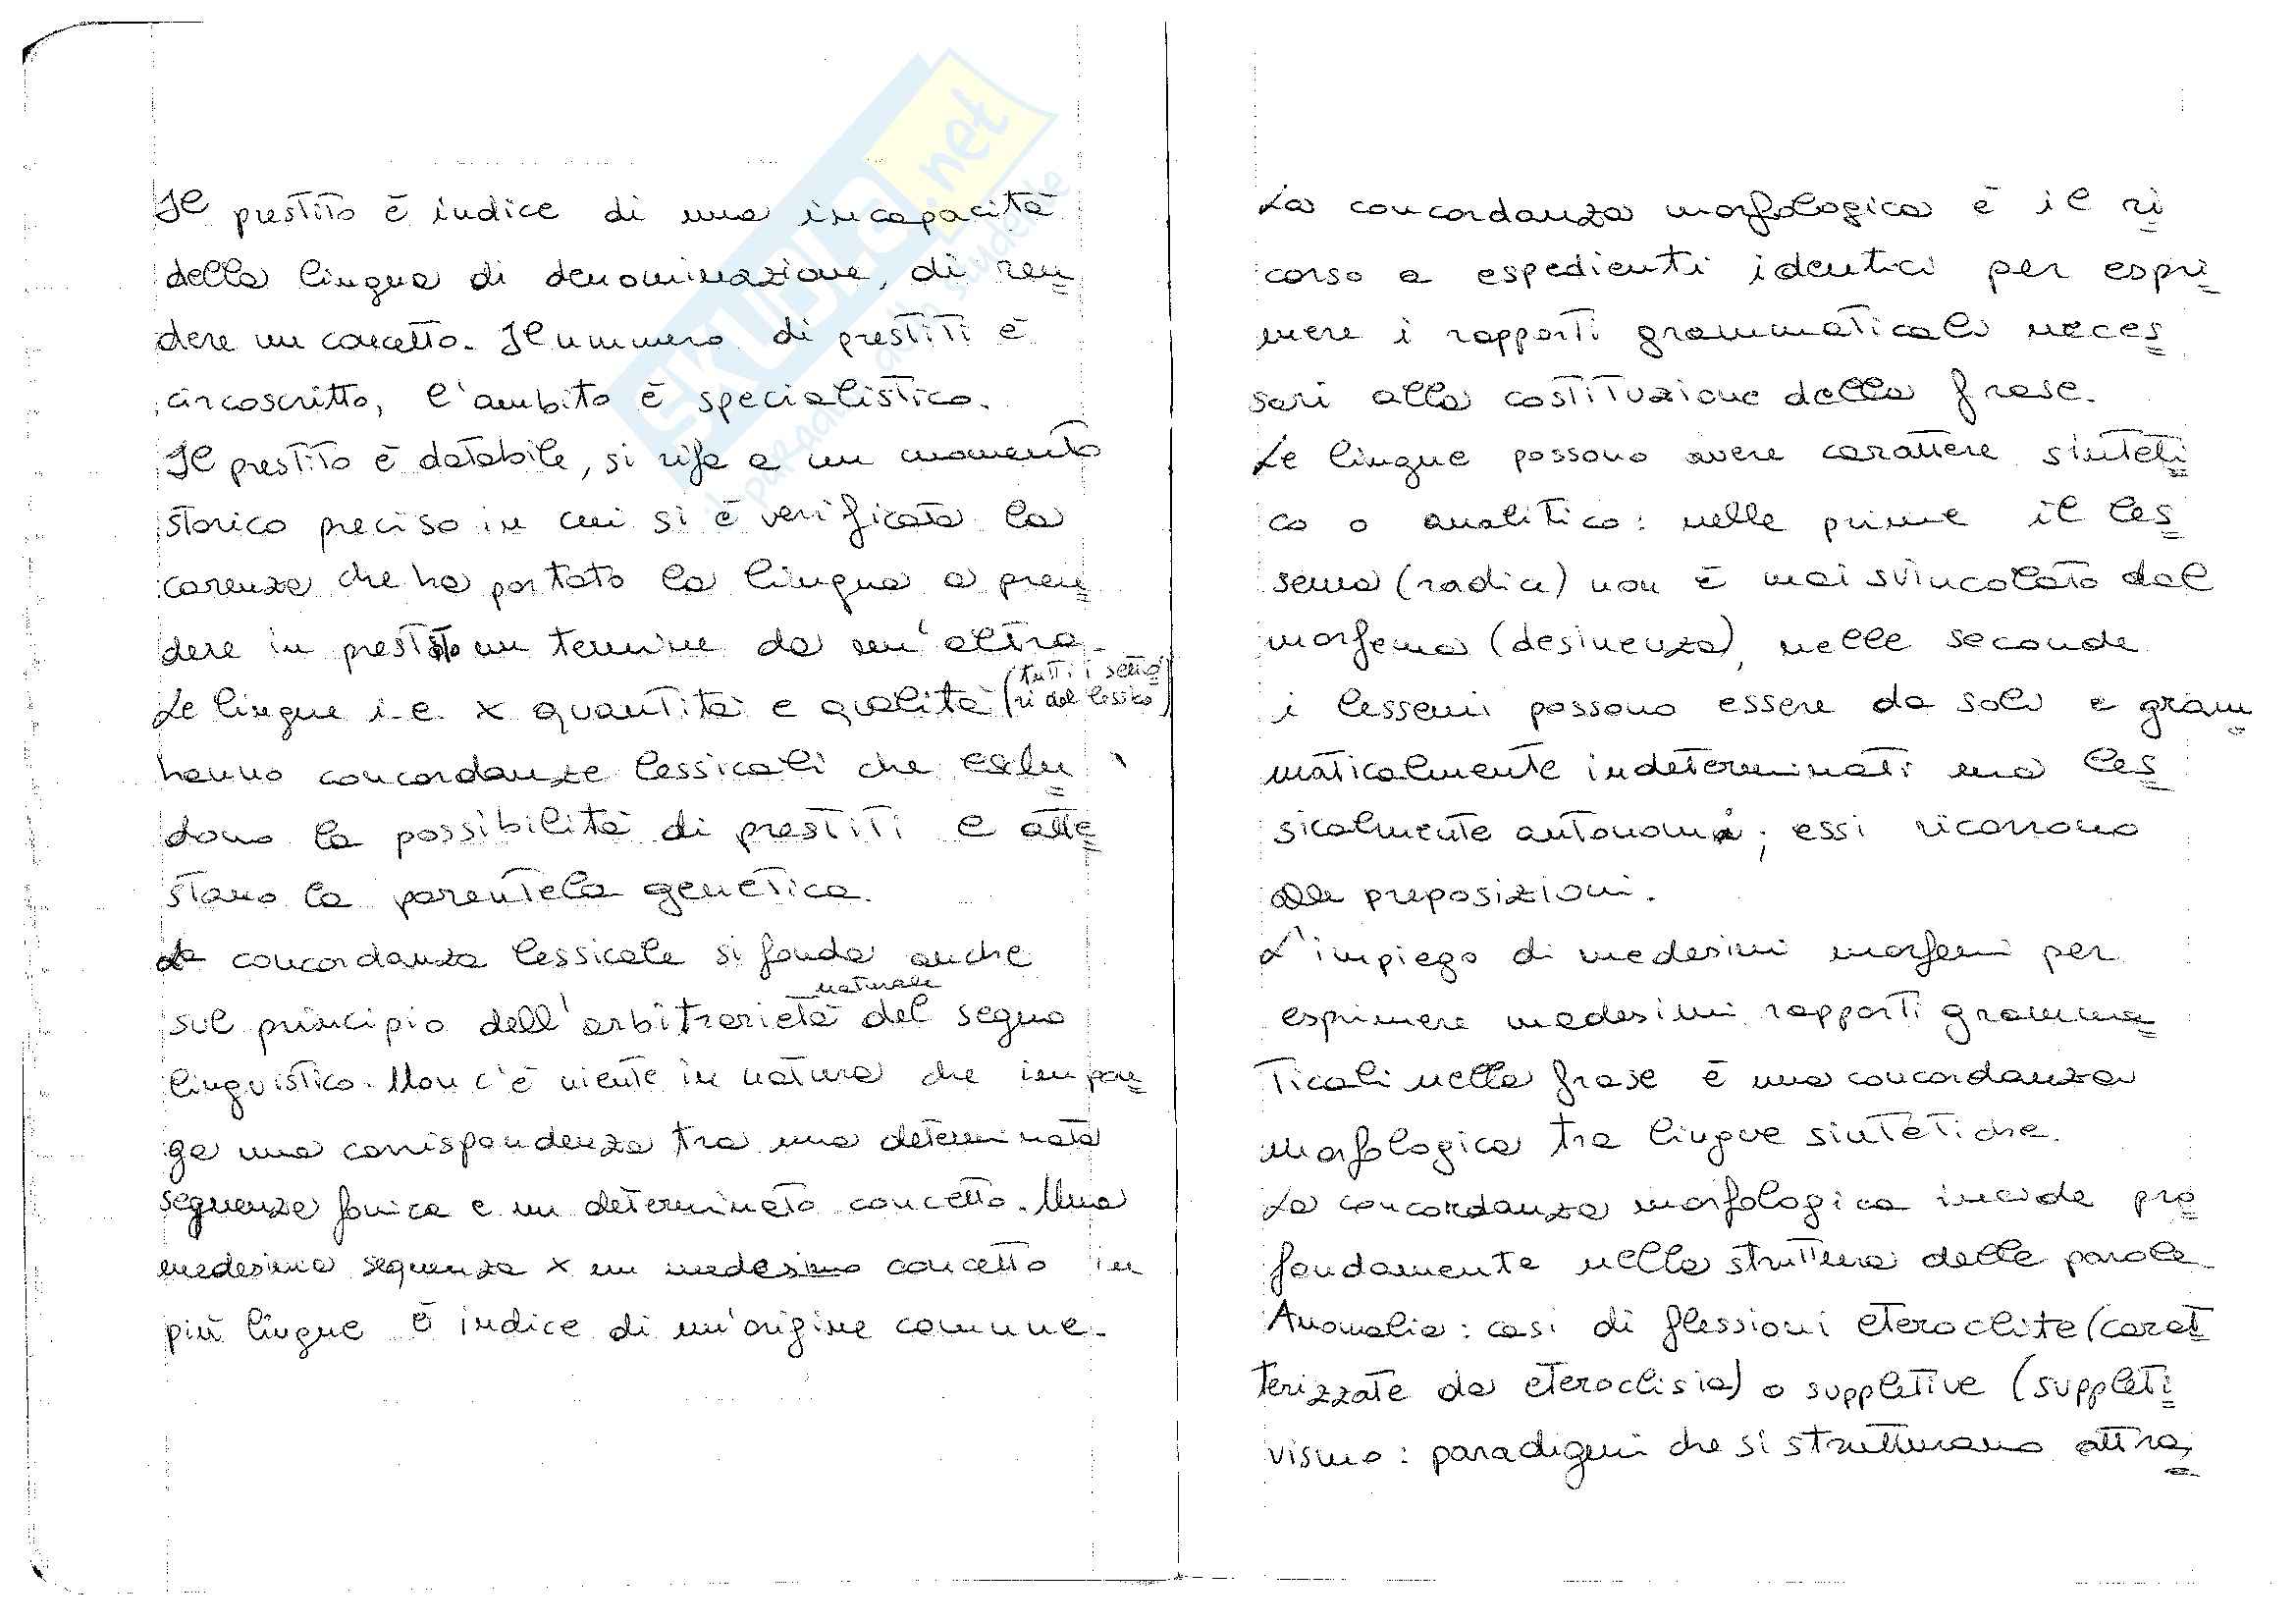 Il prestito è indice di una incapacità
della lingua di denominazione, di ren=
dere un concetto. Il numero di prestiti è
circoscritto, l'ambito è specialistico.
Il prestito è databile, si rifà a un momento
storico preciso in cui si è verificata la
carenza che ha portato la lingua a pren=
dere in prestito un termine da un'altra.
Le lingue i.e. x quantità e qualità (tutti i setto=
ri del lessico)
hanno concordanze lessicali che esclu=
dono la possibilità di prestiti e atte=
stano la parentela genetica.
La concordanza lessicale si fonda anche
naturale
sul principio dell'arbitrarietà del segno
linguistico. Non c'è niente in natura che impon=
ga una corrispondenza tra una determinata
sequenza fonica e un determinato concetto. Una
medesima sequenza x un medesimo concetto in
più lingue è indice di un'origine comune.
La concordanza morfologica è il ri=
corso a espedienti identici per espri=
mere i rapporti grammaticali neces=
sari alla costituzione della frase.
Le lingue possono avere carattere sinteti=
co o analitico: nelle prime il les=
sema (radice) non è mai svincolato dal
morfema (desinenza), nelle seconde
i lessemi possono essere da soli e gram=
maticalmente indeterminati ma les=
sicalmente autonomi; essi ricorrono
alle preposizioni.
L'impiego di medesimi morfemi per
esprimere medesimi rapporti gramma=
ticali nella frase è una concordanza
morfologica tra lingue sintetiche.
La concordanza morfologica incide pro=
fondamente nella struttura delle parole.
Anomalie: casi di flessioni eteroclite (carat=
terizzate da eteroclisia) o suppletive (suppleti=
vismo: paradigmi che si strutturano attra=
SKUOLA.net
il paradiso dello studente